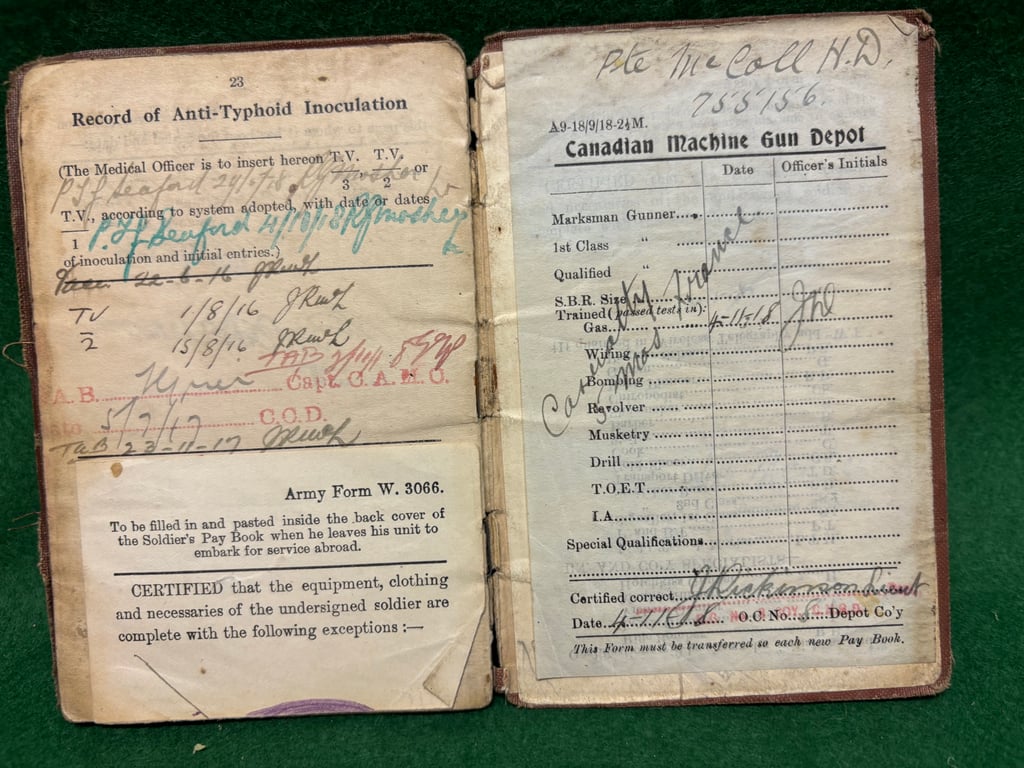 23
Record of Anti-Typhoid Inoculation
(The Medical Officer is to insert hereon T.V. T.V. or
3 2
Seaford
T.V., according to system adopted, with date or dates
1
Seaford 4/10/18
of inoculation and initial entries.)
22-6-16
TV 1/8/16
2 15/8/16
TAB
A. B. Capt. C. A. M. C.
5/7/17 C.O.D.
TAB 23-11-17
Army Form W. 3066.
To be filled in and pasted inside the back cover of
the Soldier's Pay Book when he leaves his unit to
embark for service abroad.
CERTIFIED that the equipment, clothing
and necessaries of the undersigned soldier are
complete with the following exceptions :—
Pte McColl H.D.
755156.
A9-18/9/18-2½M.
Canadian Machine Gun Depot
Date Officer's Initials
Marksman Gunner
1st Class "
Qualified "
S.B.R. Size
Trained (passed tests in):
Gas 4-11-18
Wiring
Bombing
Revolver
Musketry
Drill
T.O.E.T.
I.A.
Casualty France
Special Qualifications
Certified correct Dickinson Lieut
Date 4-11-18 O.C. No. 8 Depot Co'y
This Form must be transferred so each new Pay Book.